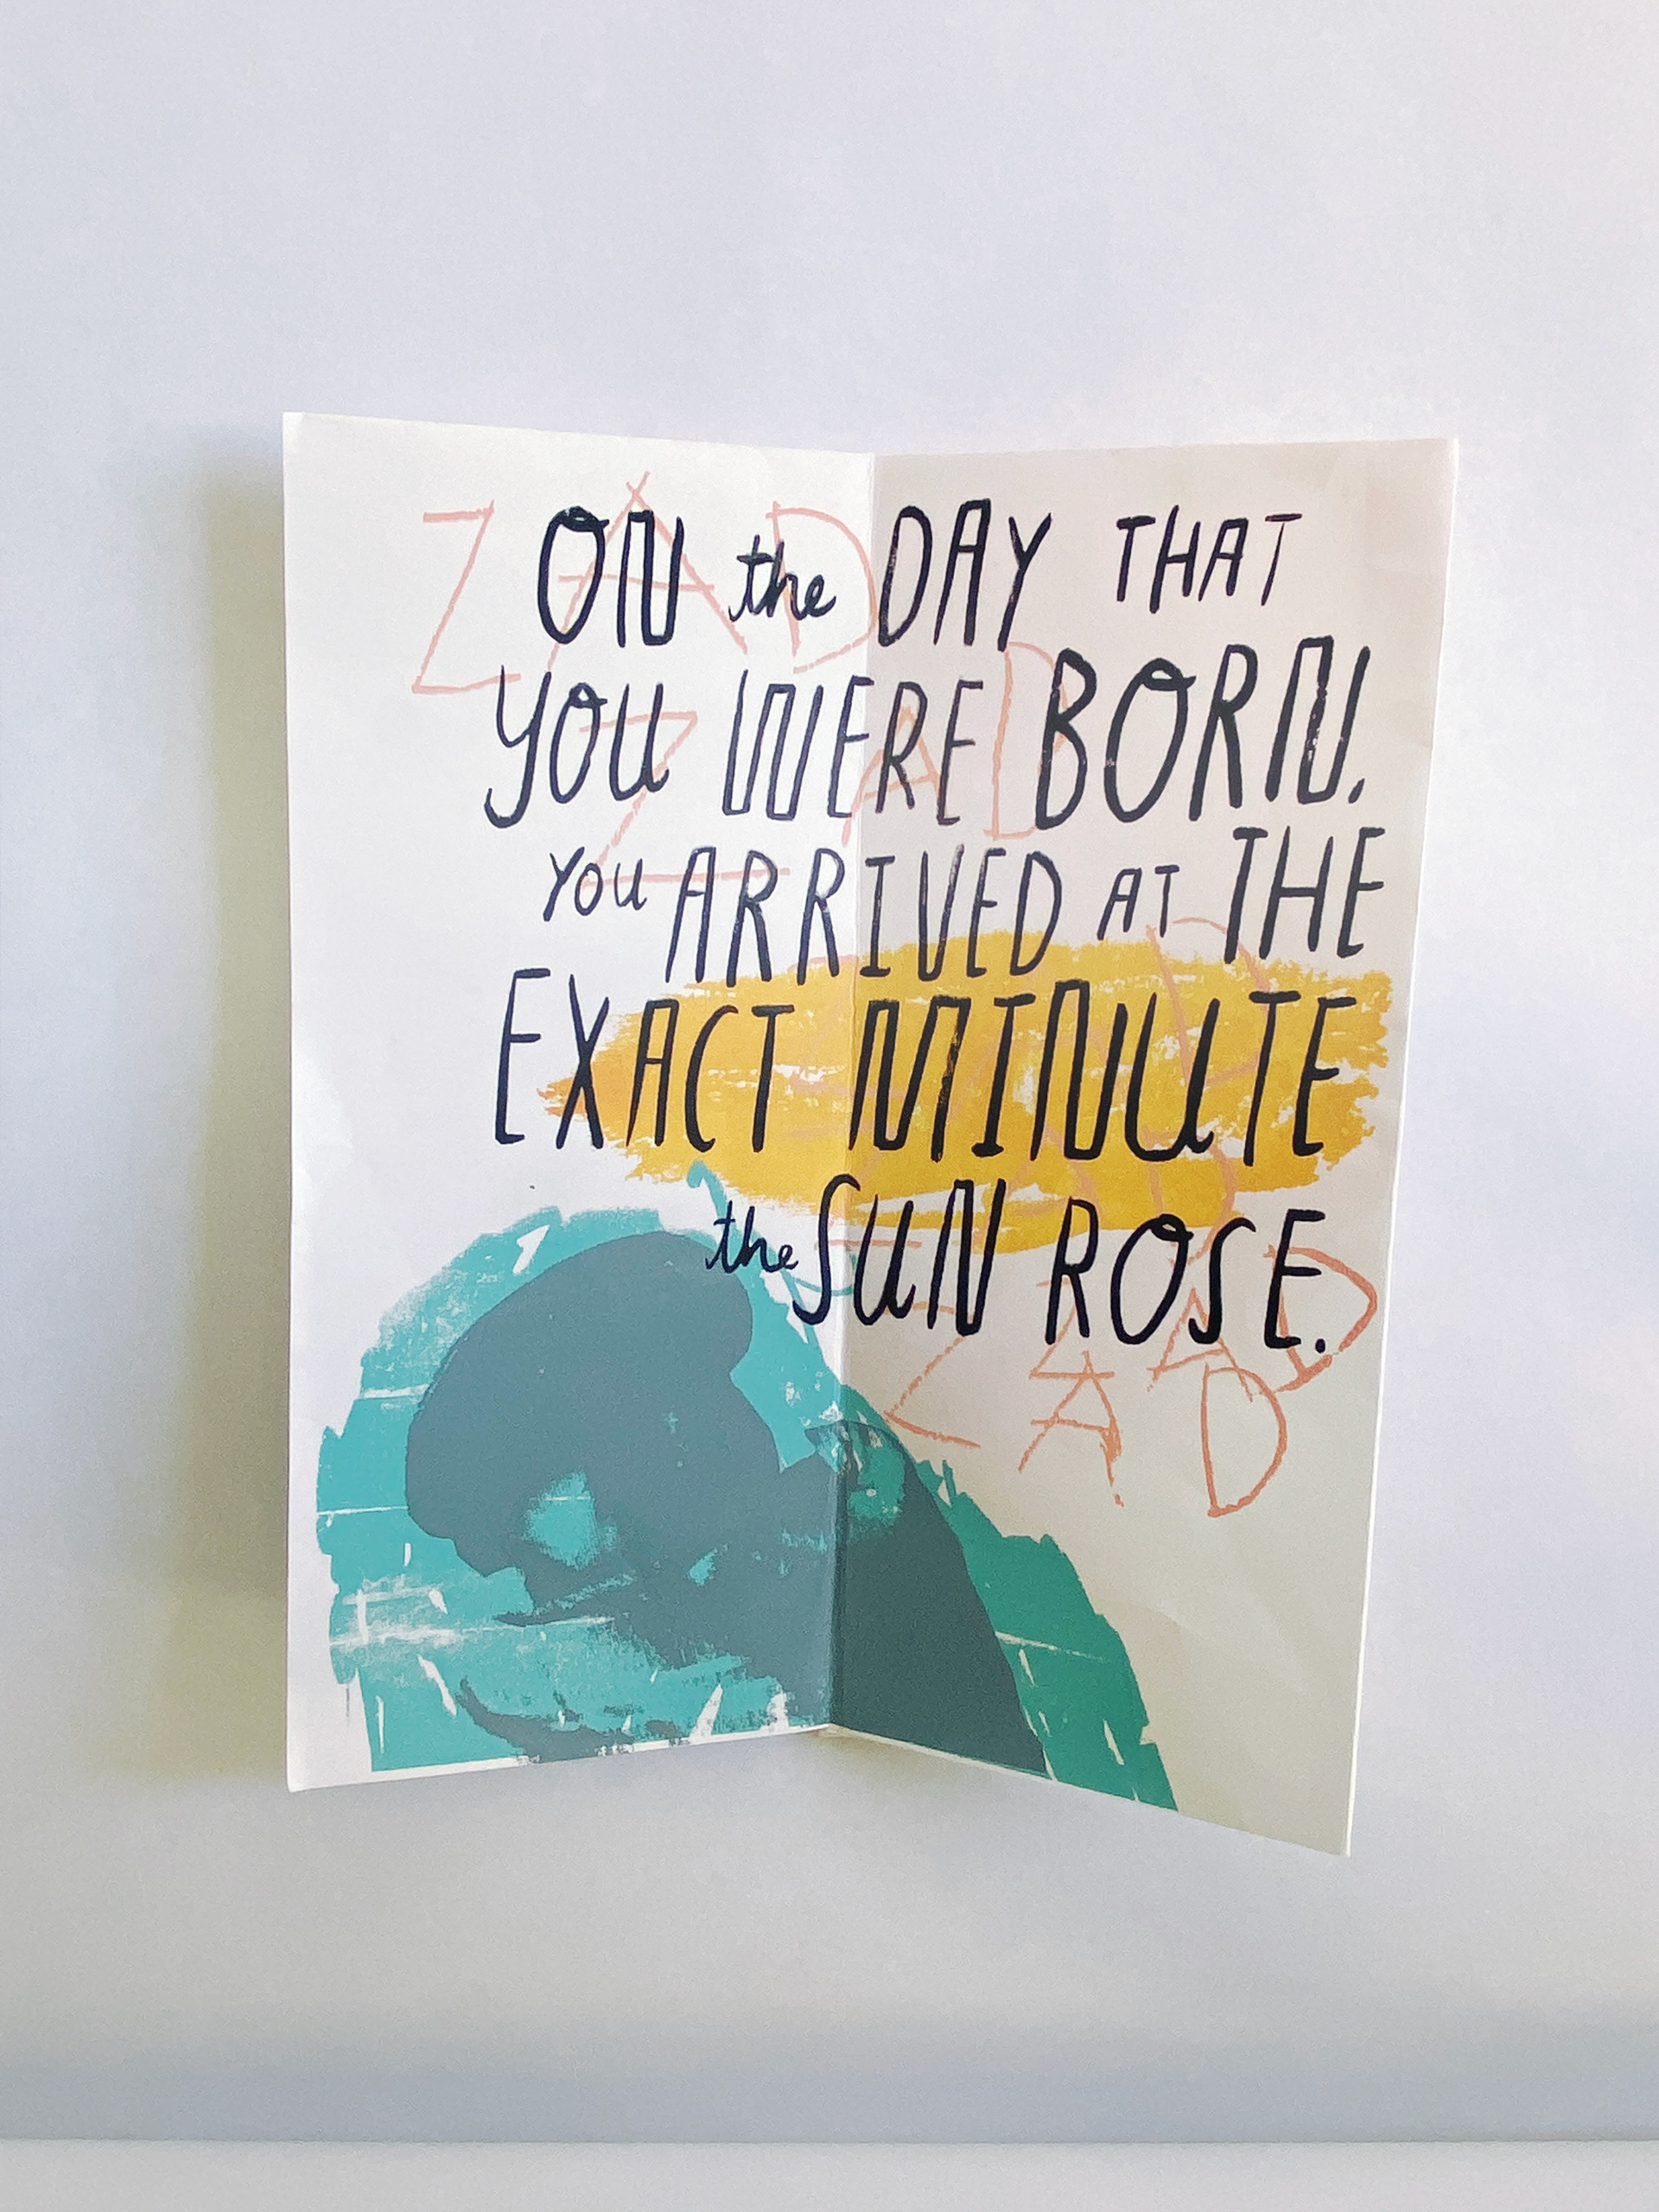 ZAD
ON the DAY THAT
ZAD
YOU WERE BORN,
YOU ARRIVED AT THE
EXACT MINUTE
the SUN ROSE.
ZAD